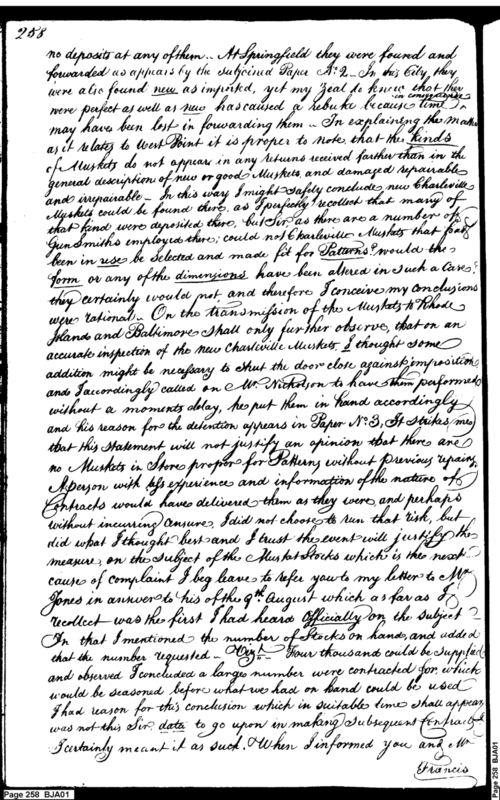 258
no deposits at any of them.. At Springfield they were found and
forwarded as appears by the subjoined Paper No. 2 – In this City, they
were also found new as imported, yet my Zeal to know that they
were perfect as well as new has caused a rebuke because time
may have been lost in forwarding them – In explaining the matter
as it relates to West Point it is proper to note, that the kinds
of Muskets do not appear in any returns received farther than in the
general description of new or good Muskets, and damaged repairable
and irrepairable – In this way I might safely conclude new Charleville
Muskets could be found there, as I perfectly recollect that many of
that kind were deposited there, but Sir, as there are a number of
Gun Smiths employed there; could not Charleville Muskets that had
been in use be selected and made fit for Patterns? would the
form or any of the dimensions have been altered in such a Case?
they certainly would not, and therefore I conceive my conclusions
were rational – On the transmission of the Muskets to Rhode
Island and Baltimore shall only further observe, that on an
accurate inspection of the new Charleville Muskets, I thought some
addition might be necessary to shut the door close against imposition
and I accordingly called on Mr. Nicholson to have them performed
without a moments delay, he put them in hand accordingly
and his reason for the detention appears in Paper No. 3, It strikes me
that this statement will not justify an opinion that there are
no Muskets in Store proper for Patterns without previous repairing.
A person with less experience and information of the nature of
Contracts would have delivered them as they were, and perhaps
without incurring Censure, I did not choose to run that risk, but
did what I thought best and I trust the event will justify the
measure, on the subject of the Musket Stocks which is the next
cause of complaint I beg leave to refer you to my letter to Mr.
Jones in answer to his of the 9th. August which as far as I
recollect was the first I had heard Officially on the subject –
In that I mentioned the number of Stocks on hand, and added
that the number requested – Vizt. – Four thousand could be supplied
and observed I concluded a large number were contracted for which
would be seasoned before what we had on hand could be used
I had reason for this conclusion which in suitable time shall appear,
was not this Sir, data to go upon in making subsequent Contracts
I certainly meant it as such. When I informed you and Mr.
Francis
Page 258 BJA01
Page 258 BJA01